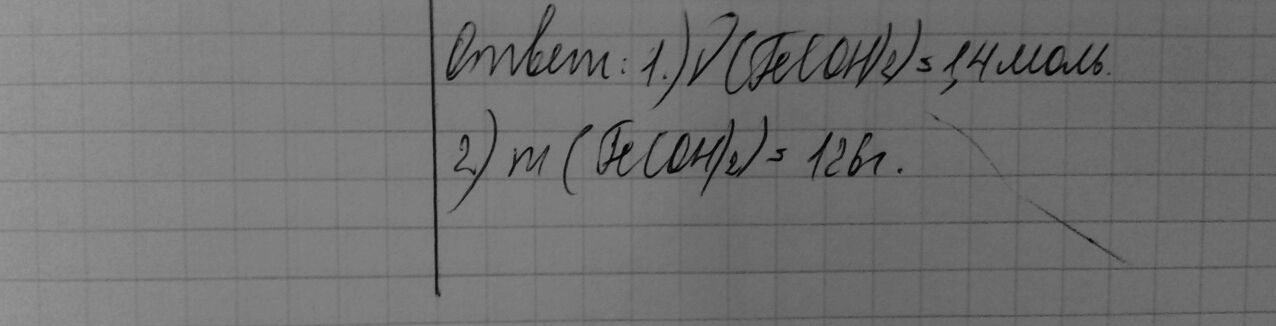 Ответ: 1.) ν(Fe(OH)₂) = 1,4 моль.
2) m (Fe(OH)₂) = 126г.